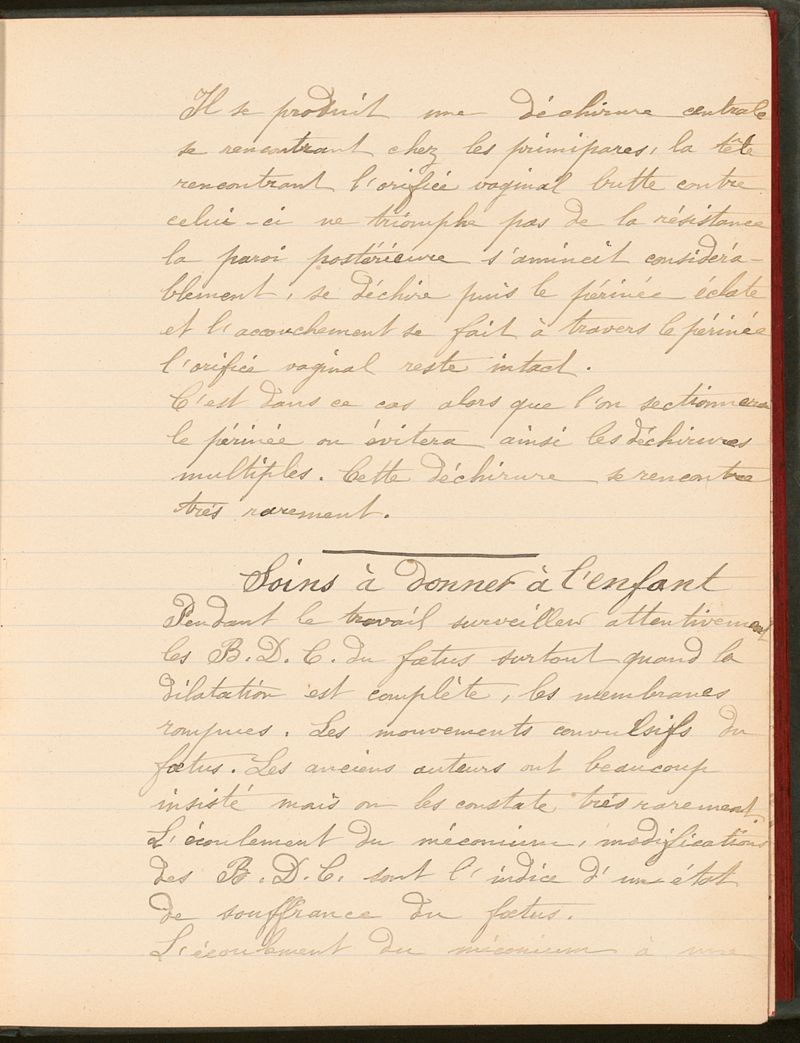 Il se produit une déchirure centrale
se rencontrant chez les primipares, la tête
rencontrant l'orifice vaginal butte contre
celui-ci ne triomphe pas de la résistance
la paroi postérieure s'amincit considéra-
blement, se déchire puis le périnée éclate
et l'accouchement se fait à travers le périnée
l'orifice vaginal reste intact.
C'est dans ce cas alors que l'on sectionnera
le périnée on évitera ainsi les déchirures
multiples. Cette déchirure se rencontre
très rarement.
Soins à donner à l'enfant
Pendant le travail surveiller attentivement
les B.D.C. du fœtus surtout quand la
dilatation est complète, les membranes
rompues. Les mouvements convulsifs du
fœtus. Les anciens auteurs ont beaucoup
insisté mais on les constate très rarement.
L'écoulement du méconium, modifications
des B.D.C. sont l'indice d'un état
de souffrance du fœtus.
L'écoulement du méconium a une